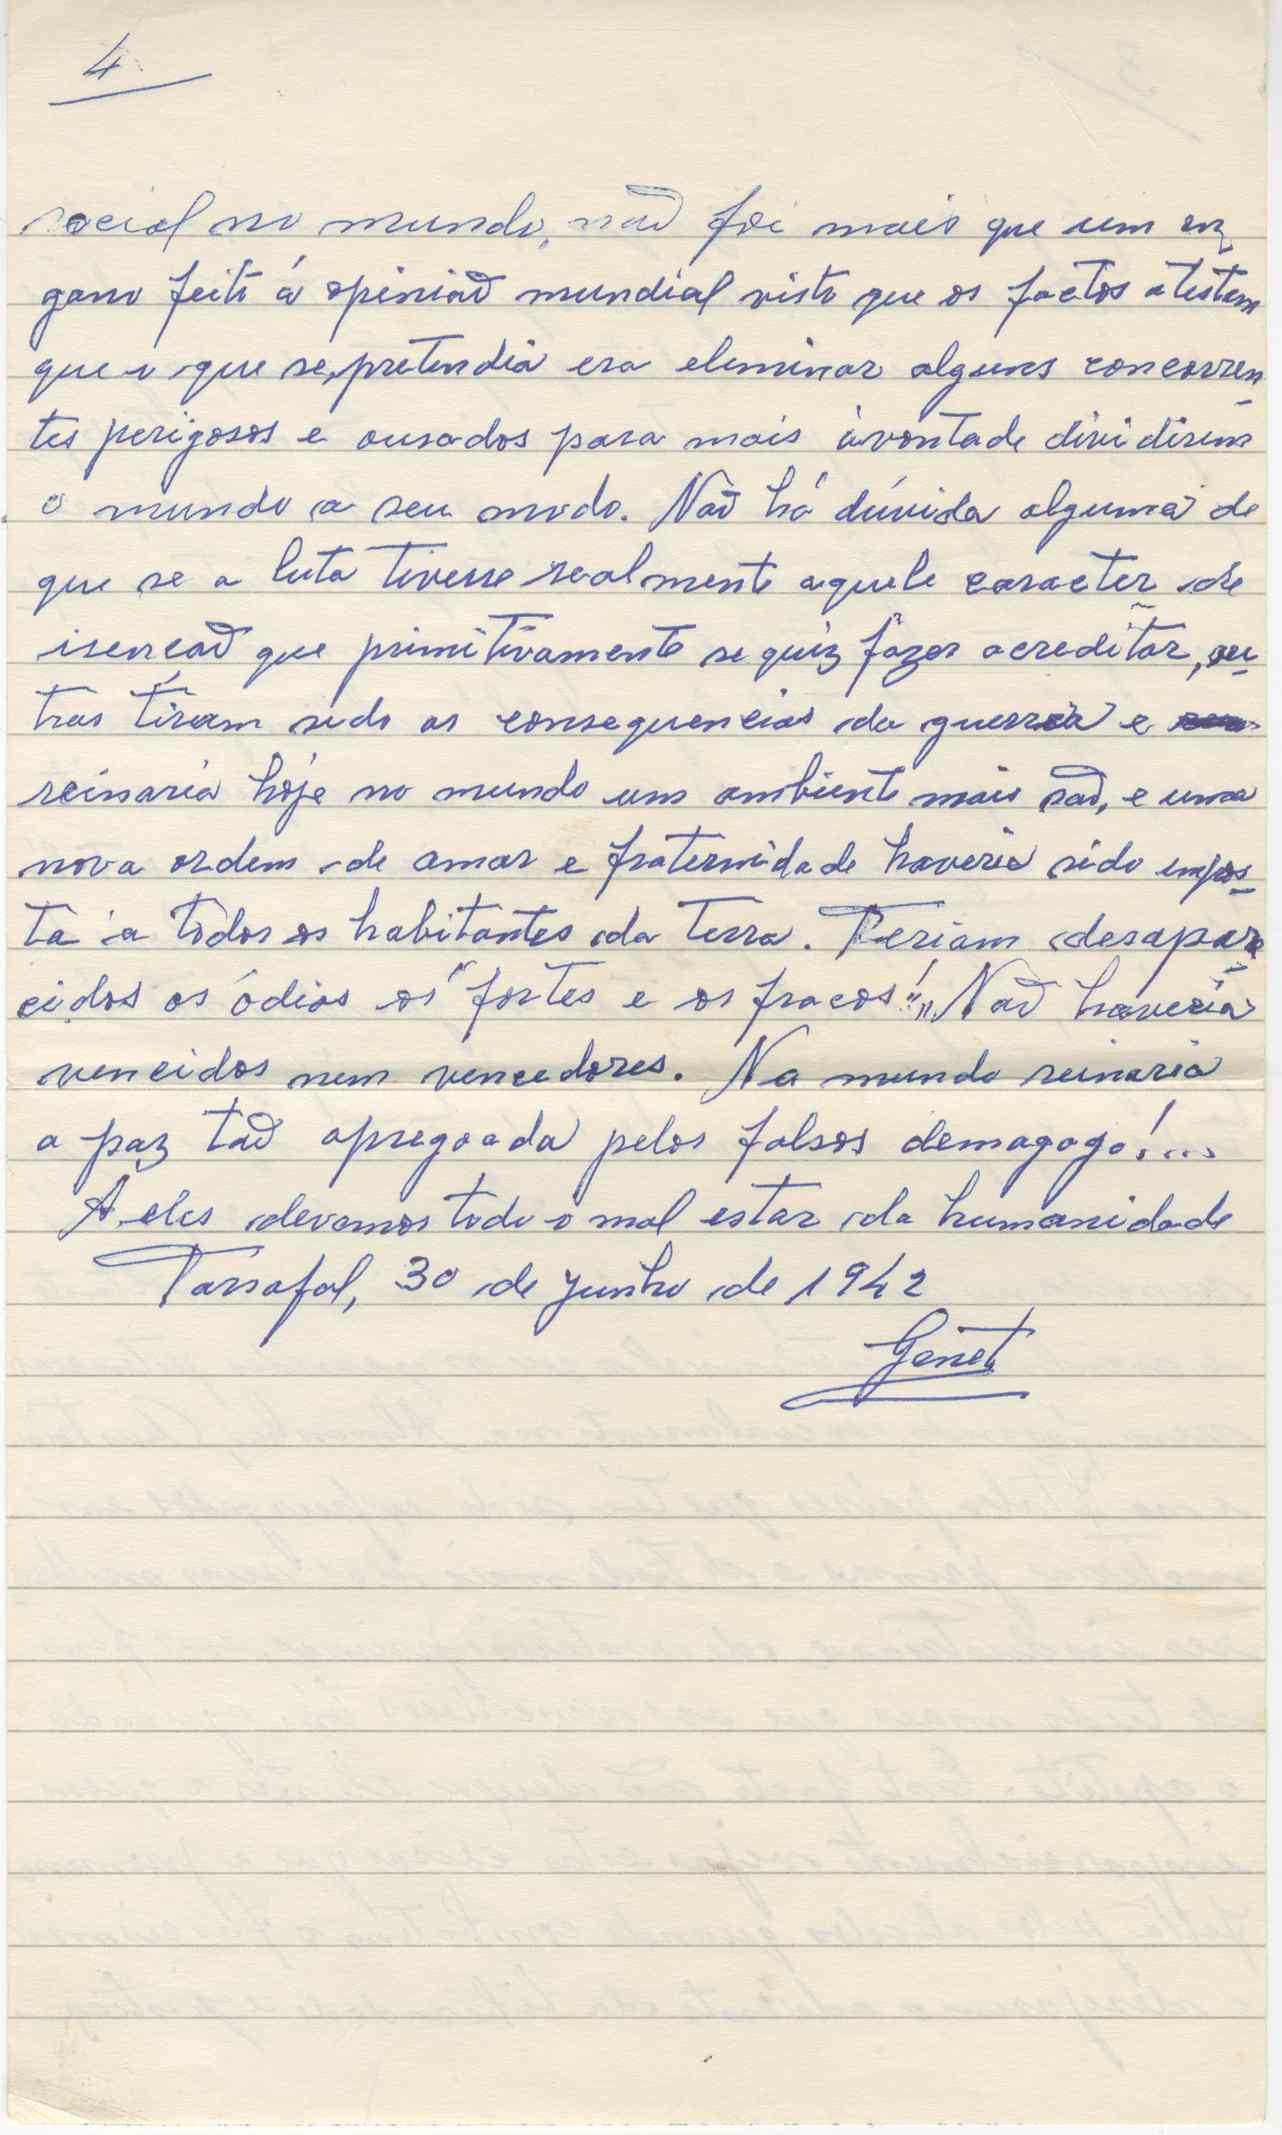 4
social no mundo, não foi mais que um en-
gano feito á opinião mundial visto que os factos atestam
que o que se pretendia era eleminar alguns concorren-
tes perigosos e ousados para mais àvontade dividirem
o mundo a seu modo. Não há dúvida alguma de
que se a luta tivesse realmente aquele caracter de
isencão que primitivamente se quiz fazer acreditar, ou-
tras tiriam sido as consequencias da guerra e
reinaria hoje no mundo um ambiente mais são, e uma
nova ordem de amar e fraternidade haveria sido impos-
ta a todos os habitantes da terra. Teriam desapare-
cidos os ódios os "fortes e os fracos!" Não haveria
vencidos nem vencedores. No mundo reinaria
a paz tão apregoada pelos falsos demagogo!...
A eles devemos todo o mal estar da humanidade
Tarrafal, 30 de Junho de 1942
Genet